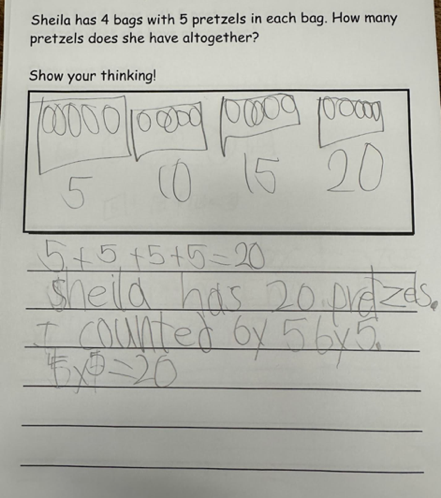 Sheila has 4 bags with 5 pretzels in each bag. How many
pretzels does she have altogether?
Show your thinking!
5 10 15 20
5+5+5+5=20
Sheila has 20 pretzes.
I counted by 5 by 5.
4x5=20